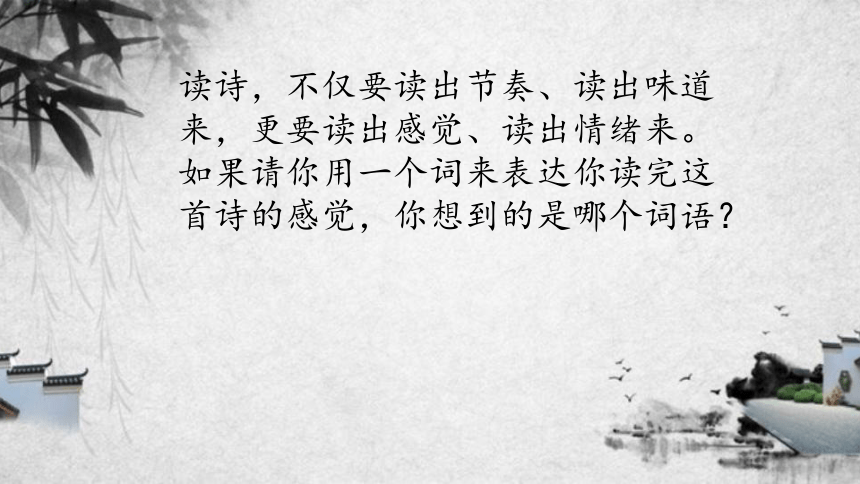 读诗，不仅要读出节奏、读出味道
来，更要读出感觉、读出情绪来。
如果请你用一个词来表达你读完这
首诗的感觉，你想到的是哪个词语？